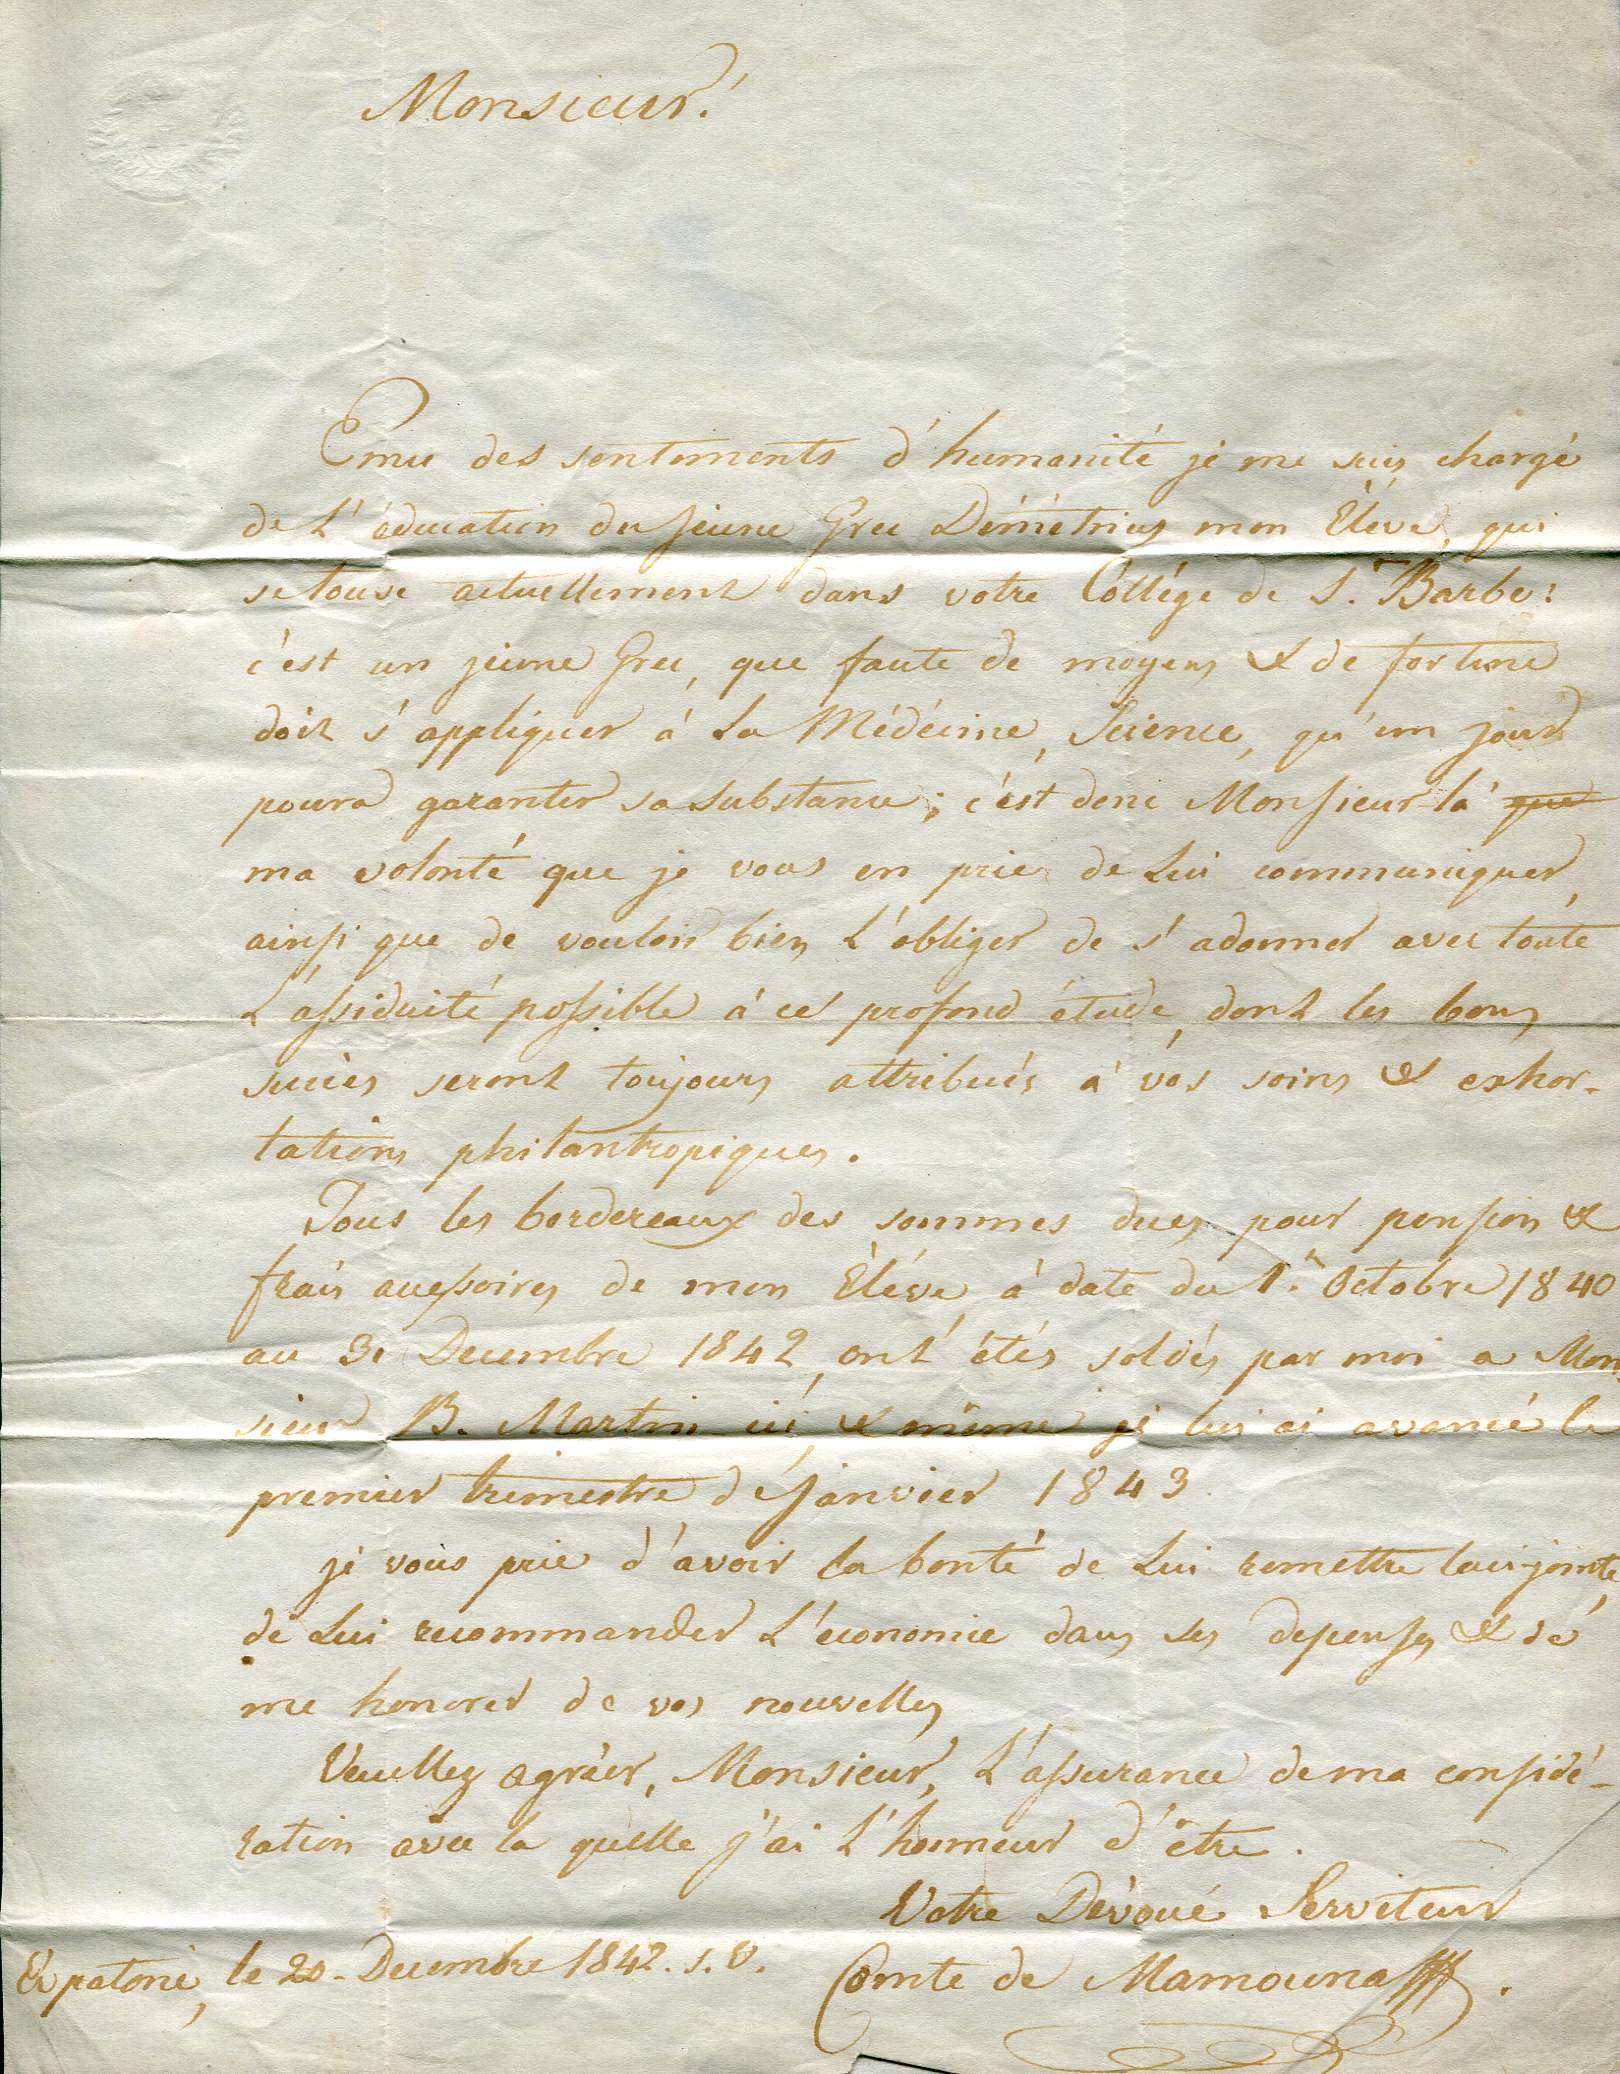 Monsieur!
Emu des sentiments d'humanité je me suis chargé
de L'éducation du jeune Grec Démétrius mon Élève, qui
se touse actuellement dans votre Collége de St. Barbe:
c'est un jeune Grec, que faute de moyens & de fortune
doit s'appliquer á La Médécine, Science, qu'un jour
poura garantir sa substance; c'est donc Monsieur là que
ma volonté que je vous en prie de Lui communiquer,
ainsi que de vouloir bien L'obliger de s'adonner avec toute
L'assiduité possible á ce profond étude, dont les bons
succès seront toujours attribués a' vos soins & exhor-
tations philantropiques.
Tous les bordereaux des sommes dues pour pension &
frais accessoires de mon Élève, à date du 1r. Octobre 1840
au 31 Decembre 1842, ont étés soldés par moi a Mon
sieur B. Martin ici, & même je lui ai avancé le
premier trimestre de Janvier 1843.
je vous prie d'avoir la bonté de Lui remettre laci-jointe,
de Lui recommander L'économie dans ses depenses & de
me honorer de vos nouvelles
Veuillez agréer, Monsieur, L'assurance de ma considé-
ration avec la quelle j'ai L'honneur d'être.
Votre Dévoué Serviteur
Evpatorie, le 20 - Decembre 1842. s. v. Comte de Mamouna